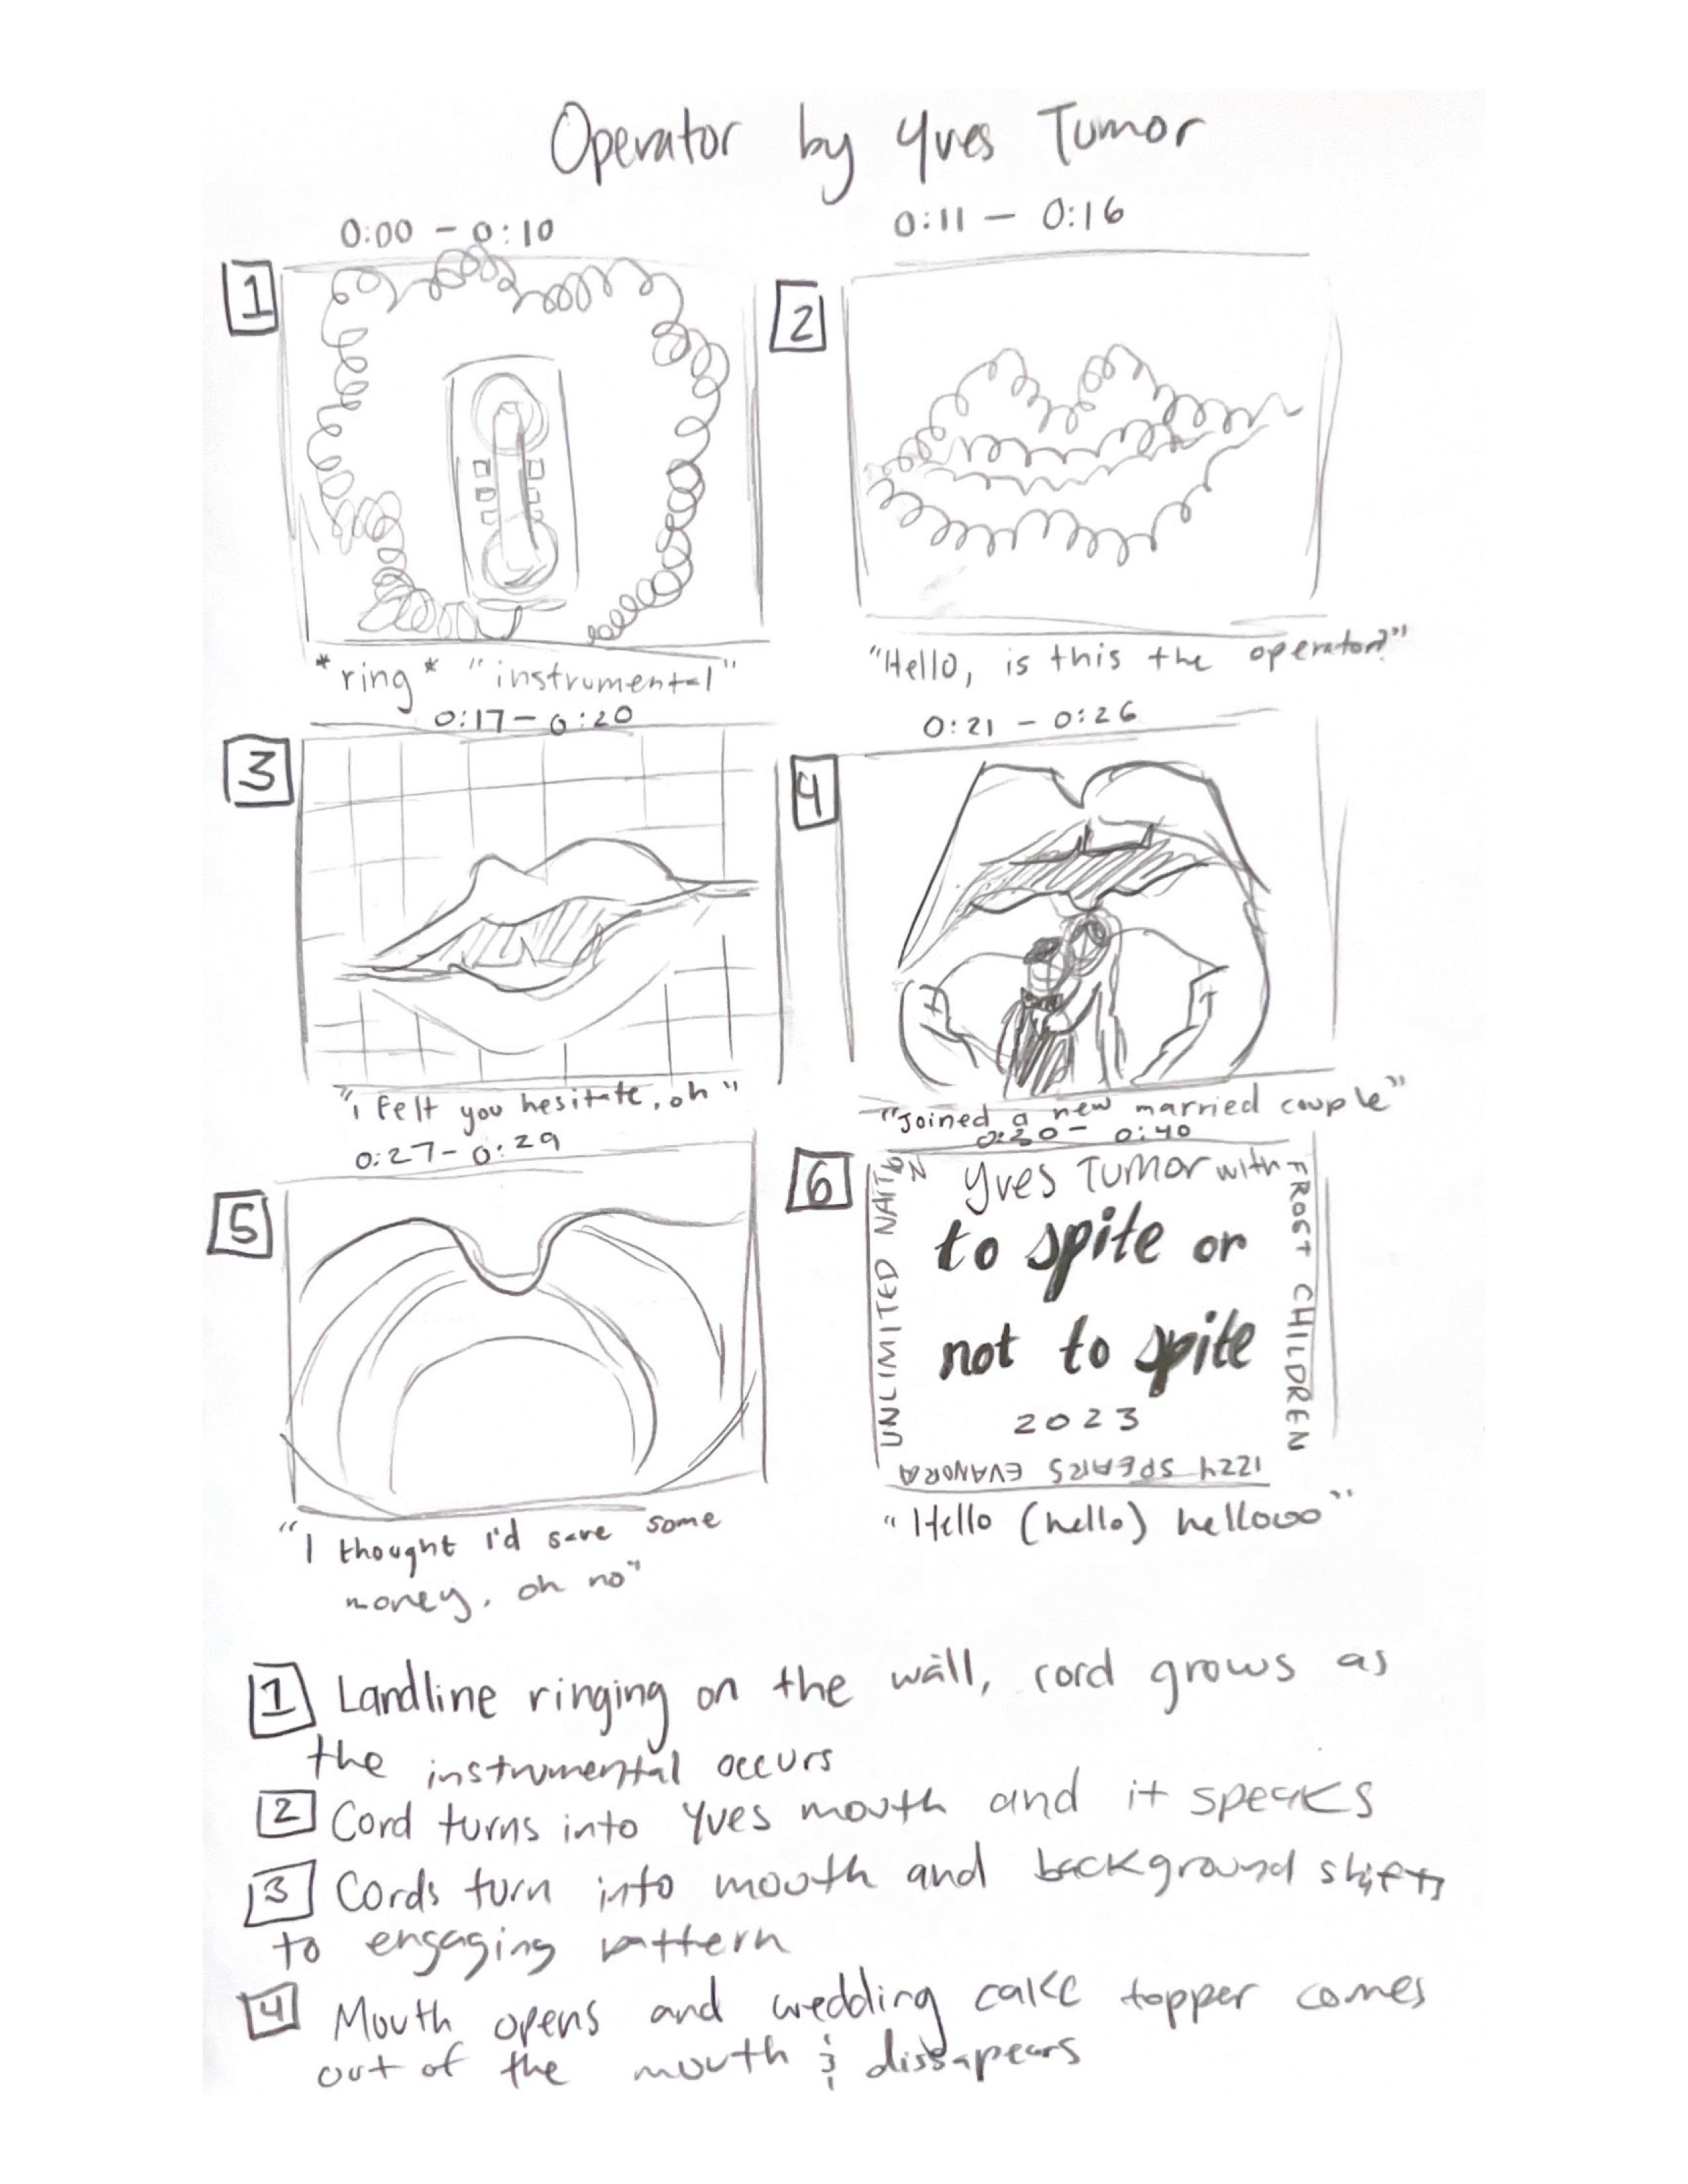 Operator by Yves Tumor
0:00 - 0:10
1
*ring* "instrumental"
0:11 - 0:16
2
"Hello, is this the operator?"
0:17 - 0:20
3
"i felt you hesitate, oh"
0:21 - 0:26
4
"Joined a new married couple"
0:27 - 0:29
5
"I thought I'd save some
money, oh no"
0:30 - 0:40
6
Yves Tumor with
FROST CHILDREN
IZZY SPEARS EVANORA
UNLIMITED NAITON
to spite or
not to spite
2023
"Hello (hello) hellooo"
1 Landline ringing on the wall, cord grows as
the instrumental occurs
2 Cord turns into Yves mouth and it speaks
3 Cords turn into mouth and background shifts
to engaging pattern
4 Mouth opens and wedding cake topper comes
out of the mouth & dissapears